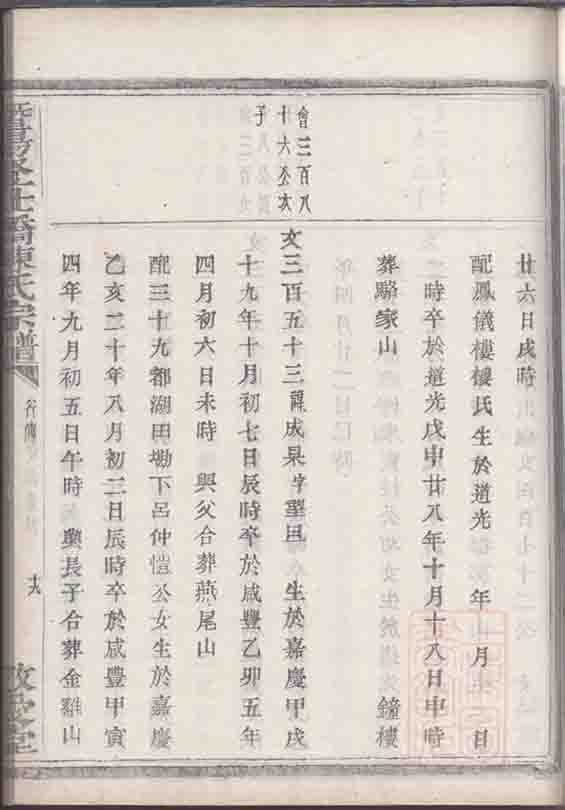 廿六日戌時
配鳳儀樓樓氏生於道光　年　月　日
時卒於道光戊申廿八年十月十八日申時　鐘樓
葬駱家山
會三百八
十六公次
子
文三百五十三諱成杲字　生於嘉慶甲戌
十九年十月初七日辰時卒於咸豐乙卯五年
四月初六日未時　與父合葬燕尾山
配三十九都湖田塘下呂仲愷公女生於嘉慶
乙亥二十年八月初二日辰時卒於咸豐甲寅
四年九月初五日午時　與長子合葬金雞山
橋陳氏宗譜
行傳